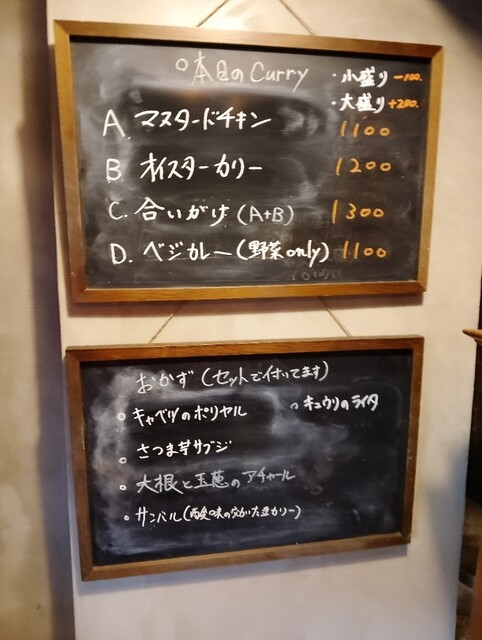 ○本日のCurry
・小盛り -100.
・大盛り +200.
A. マスタードチキン 1100
B オイスターカリー 1200
C. 合いがけ(A+B) 1300
D. ベジカレー(野菜only) 1100
おかず(セットで付いてます)
○ キャベツのポリヤル
○ キュウリのライタ
○ さつま芋サブジ
○ 大根と玉葱のアチャール
○ サンバル(酸味の効いた豆カリー)